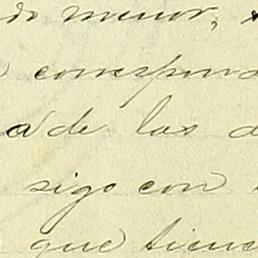 do menor,
correspon
a de las d
sigo con
que tiene